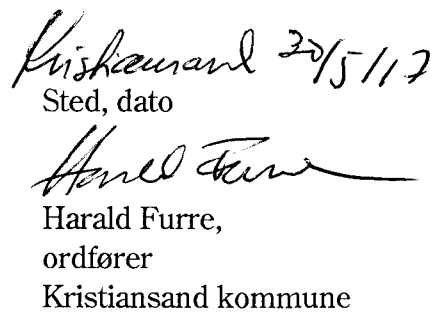 Kristiansand 30/5/17
Sted, dato
Harald Furre
Harald Furre,
ordfører
Kristiansand kommune